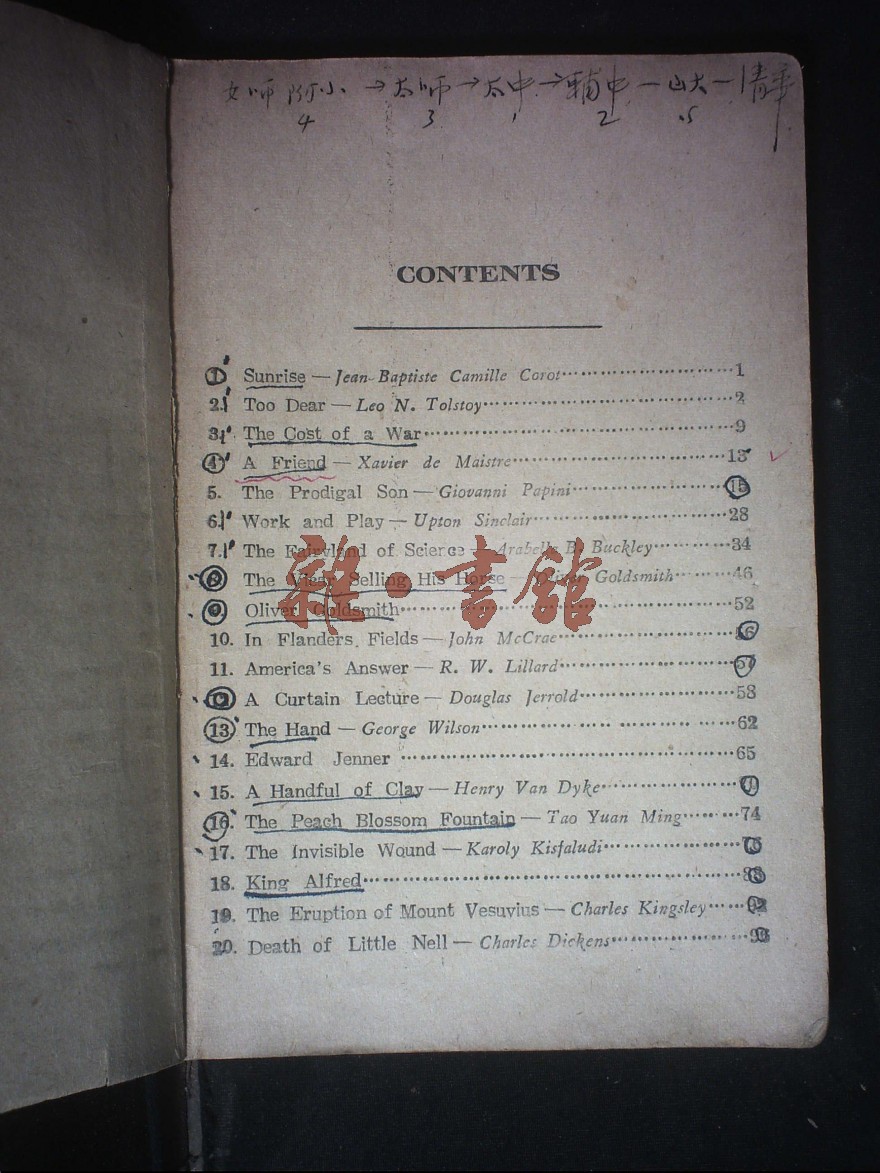 女师附小→太师→太中→辅中—山大—清华
4 3 1 2 .5
CONTENTS
1. Sunrise — Jean-Baptiste Camille Corot 1
2. Too Dear — Leo N. Tolstoy 2
3. The Cost of a War 9
4. A Friend — Xavier de Maistre 13
5. The Prodigal Son — Giovanni Papini 15
6. Work and Play — Upton Sinclair 28
7. The Fairyland of Science — Arabella B. Buckley 34
8. The Vicar Selling His Horse — Oliver Goldsmith 46
9. Oliver Goldsmith 52
10. In Flanders Fields — John McCrae 56
11. America's Answer — R. W. Lillard 57
12. A Curtain Lecture — Douglas Jerrold 58
13. The Hand — George Wilson 62
14. Edward Jenner 65
15. A Handful of Clay — Henry Van Dyke
16. The Peach Blossom Fountain — Tao Yuan Ming 74
17. The Invisible Wound — Karoly Kisfaludi
18. King Alfred
19. The Eruption of Mount Vesuvius — Charles Kingsley
20. Death of Little Nell — Charles Dickens
雜·書館